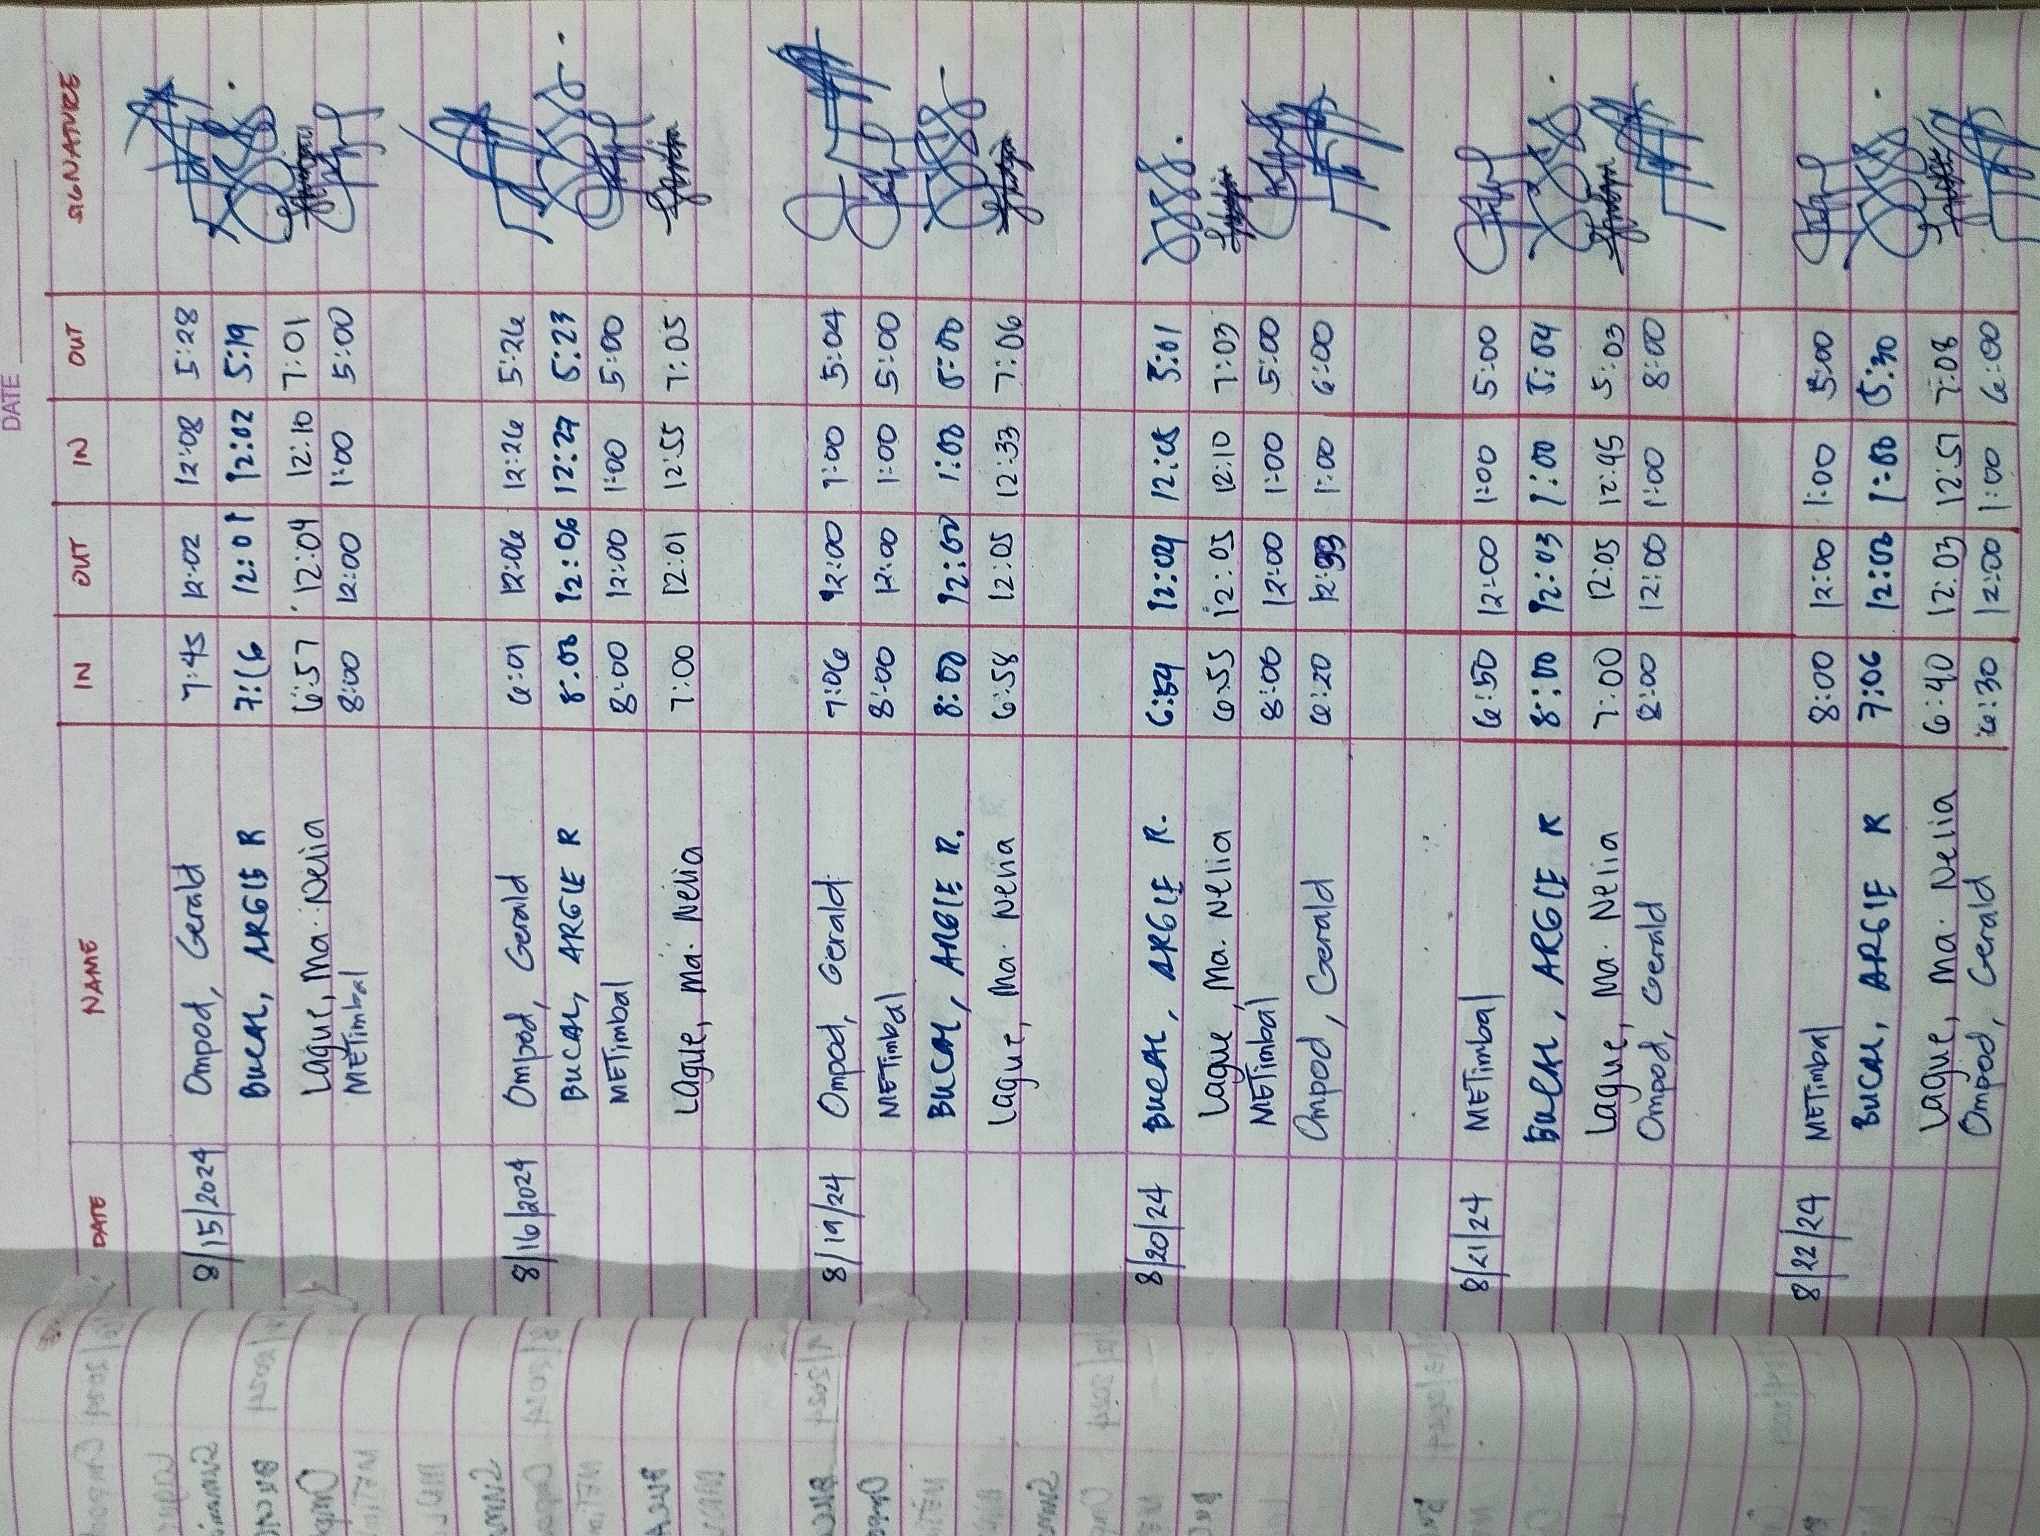 DATE
DATE NAME IN OUT IN OUT SIGNATURE
8/15/2024 Ompod, Gerald 7:45 12:02 12:08 5:28
BUCAL, ARGIE R 7:16 12:01 12:02 5:19
Lague, Ma. Nelia 6:57 12:04 12:10 7:01
METimbal 8:00 12:00 1:00 5:00
8/16/2024 Ompod, Gerald 6:01 12:06 12:26 5:26
BUCAL, ARGIE R 8:00 12:06 12:27 5:23
METimbal 8:00 12:00 1:00 5:00
Lague, Ma. Nelia 7:00 12:01 12:55 7:05
8/19/24 Ompod, Gerald 7:06 12:00 1:00 5:04
METimbal 8:00 12:00 1:00 5:00
BUCAL, ARGIE R. 8:00 12:00 1:00 5:00
Lague, Ma. Nelia 6:58 12:05 12:33 7:06
8/20/24 BUCAL, ARGIE R. 6:54 12:04 12:05 5:01
Lague, Ma. Nelia 6:55 12:05 12:10 7:03
METimbal 8:00 12:00 1:00 5:00
Ompod, Gerald 6:20 1:00 6:00
8/21/24 METimbal 6:50 12:00 1:00 5:00
BUCAL, ARGIE R 8:00 12:03 1:00 5:04
Lague, Ma. Nelia 7:00 12:05 12:45 5:03
Ompod, Gerald 8:00 12:00 1:00 8:00
8/22/24 METimbal 8:00 12:00 1:00 5:00
BUCAL, ARGIE R 7:06 12:02 1:00 5:30
Lague, Ma. Nelia 6:40 12:03 12:57 7:08
Ompod, Gerald 6:30 12:00 1:00 6:00